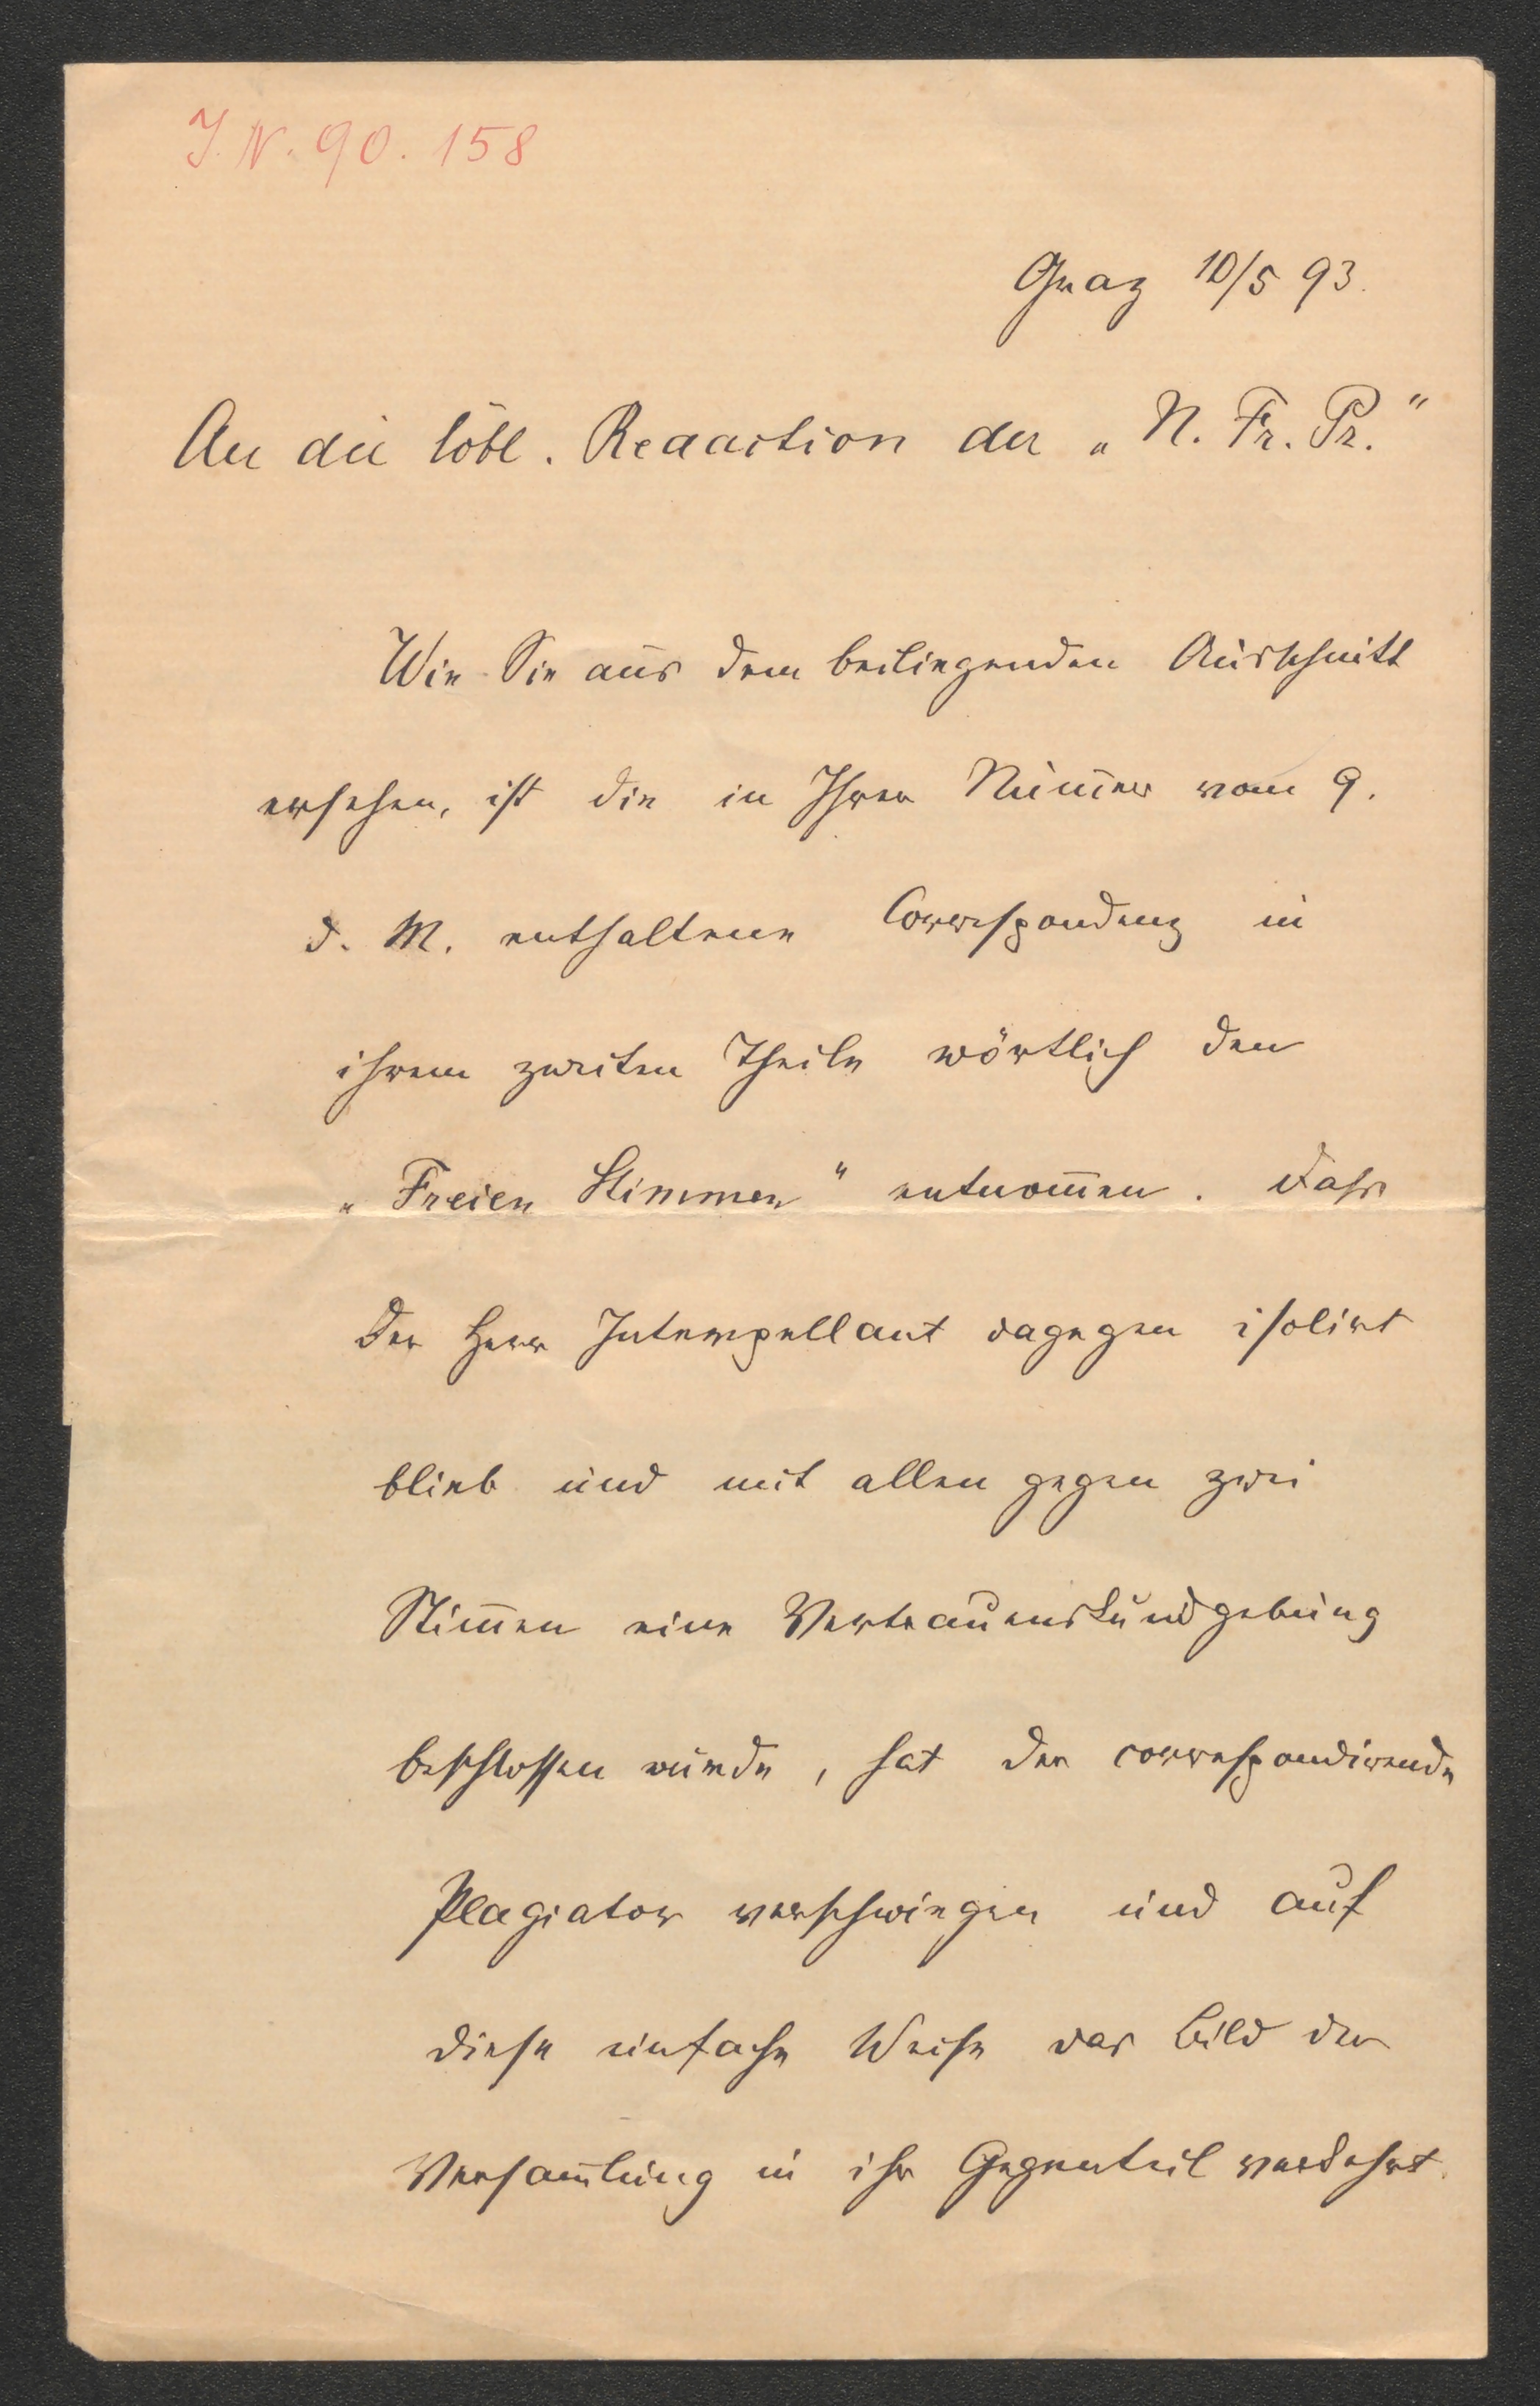 J. N. 90.158
Graz 10/5 93.
An die löbl. Redaction der „N. Fr. Pr."
Wie Sie aus dem beiliegenden Ausschnitt
ersehen, ist die in Ihrer Num̄er vom 9.
d. M. enthaltene Correspondenz in
ihrem zweiten Theile wörtlich den
„Freien Stimmen" entnom̄en. Dass
der Herr Interpellant dagegen isolirt
blieb und mit allen gegen zwei
Stim̄en eine Vertrauenskundgebung
beschlossen wurde, hat der correspondirende
Plagiator verschwiegen und auf
diese einfache Weise das Bild der
Versam̄lung in ihr Gegenteil verkehrt.